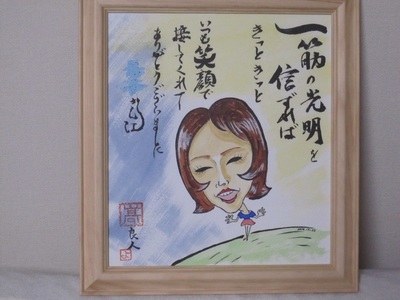 一筋の光明を
信ずれば
きっときっと
いつも笑顔で
接してくれて
ありがとうございました
良人